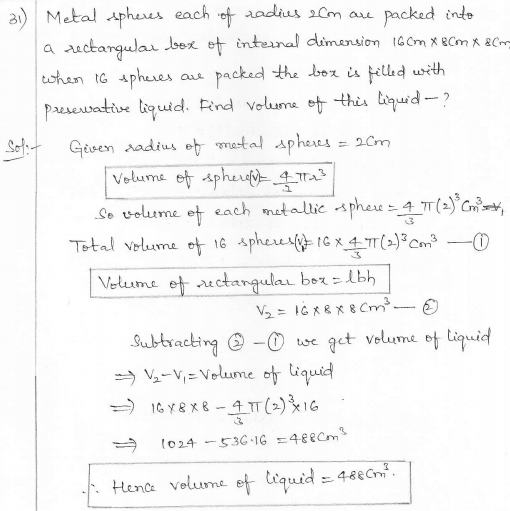 31) Metal spheres each of radius 2cm are packed into
a rectangular box of internal dimension 16cm x 8cm x 8cm
when 16 spheres are packed the box is filled with
preservative liquid. Find volume of this liquid - ?
Sol:- Given radius of metal spheres = 2cm
Volume of sphere(v) = 4/3 πr³
So volume of each metallic sphere = 4/3 π(2)³ cm³
Total volume of 16 spheres(v₁) = 16 x 4/3 π(2)³ cm³ — ①
Volume of rectangular box = lbh
V₂ = 16 x 8 x 8 cm³ — ②
Subtracting ② - ① we get volume of liquid
⇒ V₂ - V₁ = Volume of liquid
⇒ 16 x 8 x 8 - 4/3 π(2)³ x 16
⇒ 1024 - 536.16 = 488cm³
∴ Hence volume of liquid = 488cm³.